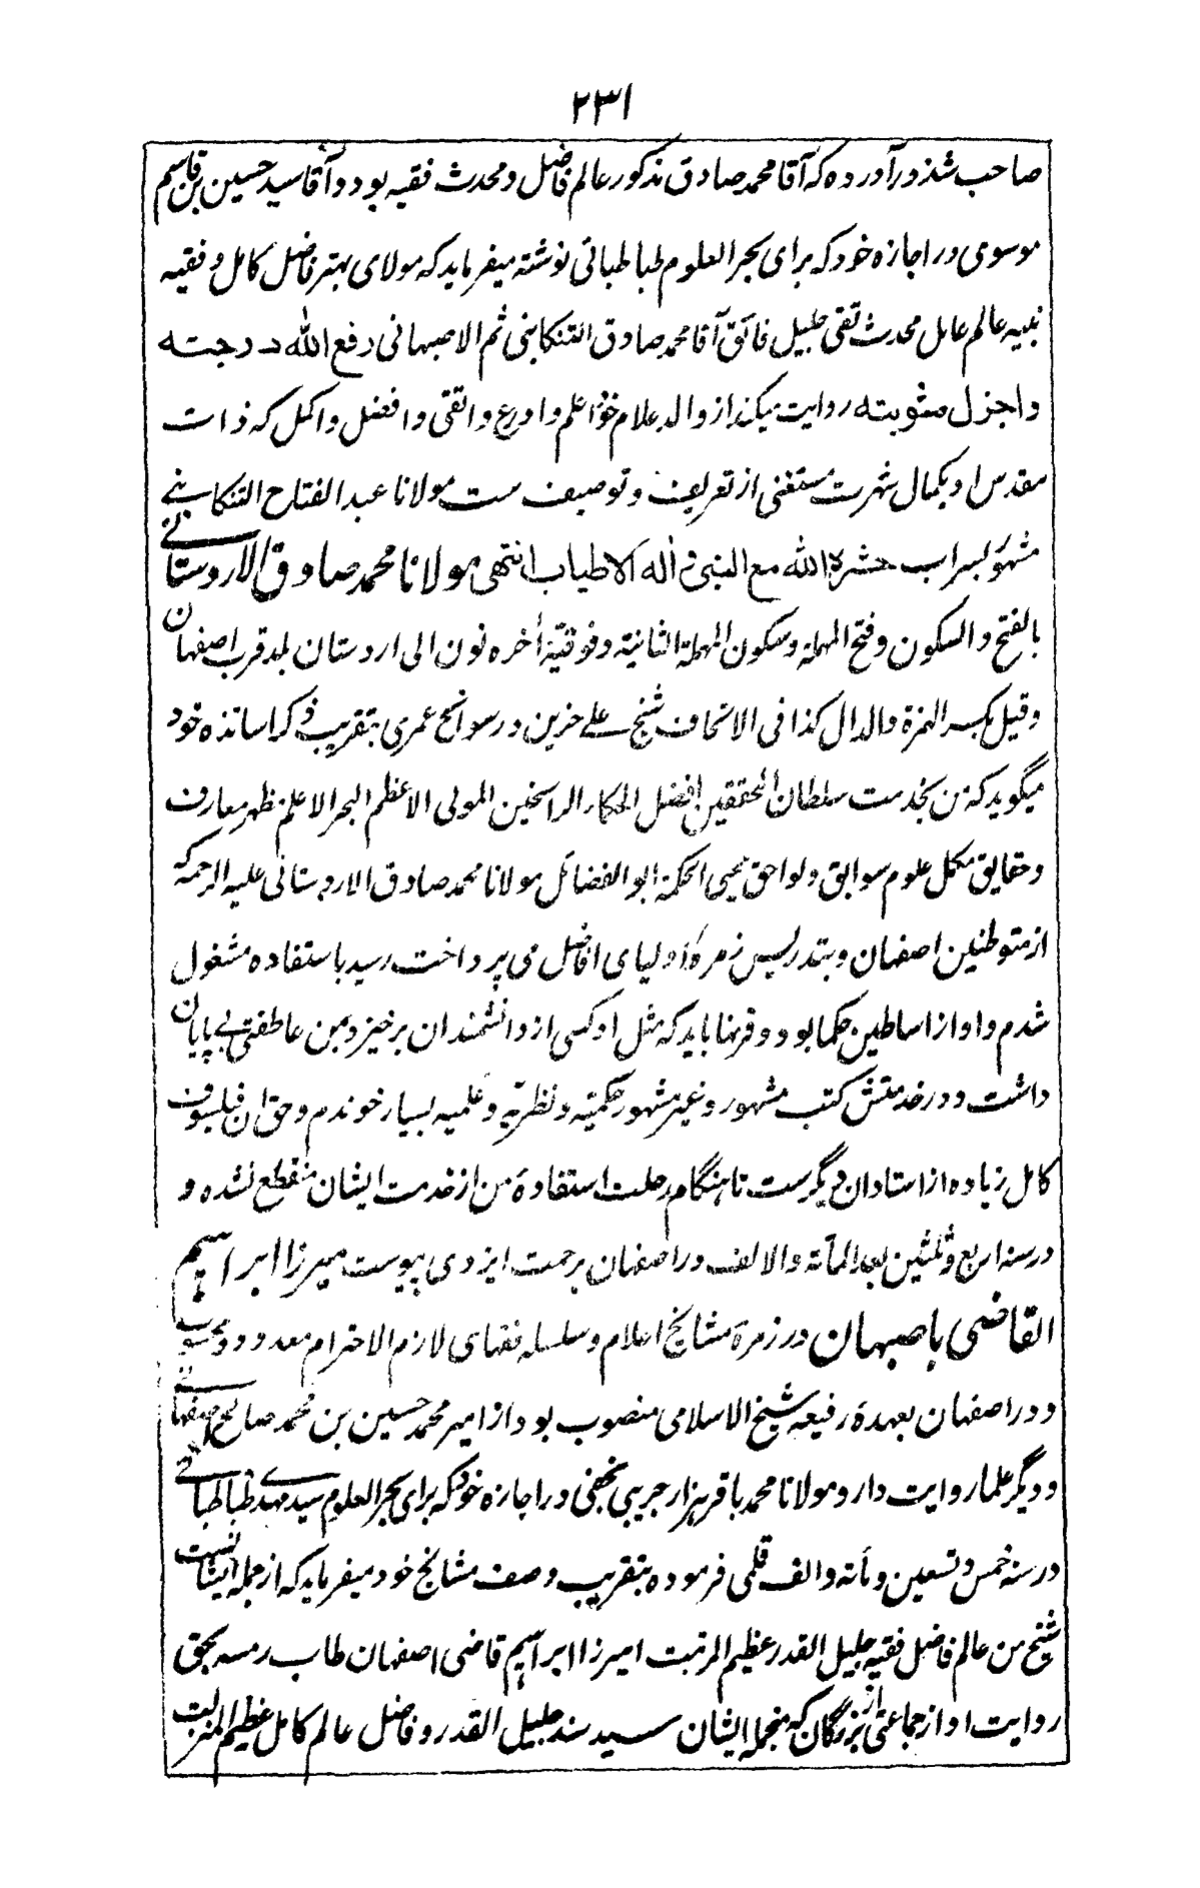 ۲۳۱
صاحب شذور آورده که آقا محمد صادق مذکور عالم فاضل و محدث فقیه بود و آقا سید حسین بن قاسم
موسوی در اجازه خود که برای بحر العلوم طباطبائی نوشته میفرماید که مولای بهتر فاضل کامل و فقیه
نبیه عالم عامل محدث تقی جلیل فائق آقا محمد صادق التنکابنی ثم الاصبهانی رفع الله درجته
و اجزل مثوبته روایت میکند از والد علام خود اعلم و اورع و اتقی و افضل و اکمل که ذات
مقدس او بکمال شهرت مستغنی از تعریف و توصیف ست مولانا عبد الفتاح التنکابنے
مشهور بسراب حشره الله مع النبی و اله الاطیاب انتهی مولانا محمد صادق الاردستانے
بالفتح و السکون و فتح المهملة و سکون المهملة الثانیة و فوقیّة اٰخره نون الی اردستان بلد قرب اصفهان
و قیل بکسر الهمزة و الدال کذا فی الاتحاف شیخ علے حزین در سوانح عمری بتقریب ذکر اساتذه خود
میگوید که من بخدمت سلطان المحققین افضل الحکماء الراسخین المولی الاعظم البحر الاعلم مظهر معارف
و حقایق مکمل علوم سوابق و لواحق محیی الحکمة ابو الفضائل مولانا محمد صادق الاردستانی علیه الرحمة که
از متوطنین اصفهان و بتدریس زمرهٔ اولیای افاضل می پرداخت رسید باستفاده مشغول
شدم و او از اساطین حکما بود و قرنها باید که مثل او کسی از دانشمندان برخیزد بمن عاطفتی بے پایان
داشت و در خدمتش کتب مشهور و غیر مشهور حکمیّه و نظریّه و علمیه بسیار خوندم و حق ان فیلسوف
کامل زیاده از استادان دیگرست تا هنگام رحلت استفادهٔ من از خدمت ایشان منقطع نشده و
در سنه اربع و ثلثین بعد المأته و الالف در اصفهان برحمت ایزدی پیوست میرزا ابراهیم
القاضی باصبهان در زمرهٔ مشائخ اعلام و سلسله فقهای لازم الاحترام معدود و محسوب
و در اصفهان بعهدهٔ رفیعه شیخ الاسلامی منصوب بود از امیر محمد حسین بن محمد صالح اصفهانے
و دیگر علما روایت دارد و مولانا محمد باقر هزار جریبی نجفی در اجازه خود که برای بحر العلوم سید مهدے طباطبائے
در سنه خمس و تسعین و مأته و الف قلمی فرموده بتقریب وصف مشائخ خود میفرماید که از جمله ایشانست
شیخ من عالم فاضل فقیه جلیل القدر عظیم المرتبت امیرزا ابراهیم قاضی اصفهان طاب رمسه بحق
روایت او از جماعتی از بزرگان که منجمله ایشان سید سند جلیل القدر و فاضل عالم کامل عظیم المنزلت